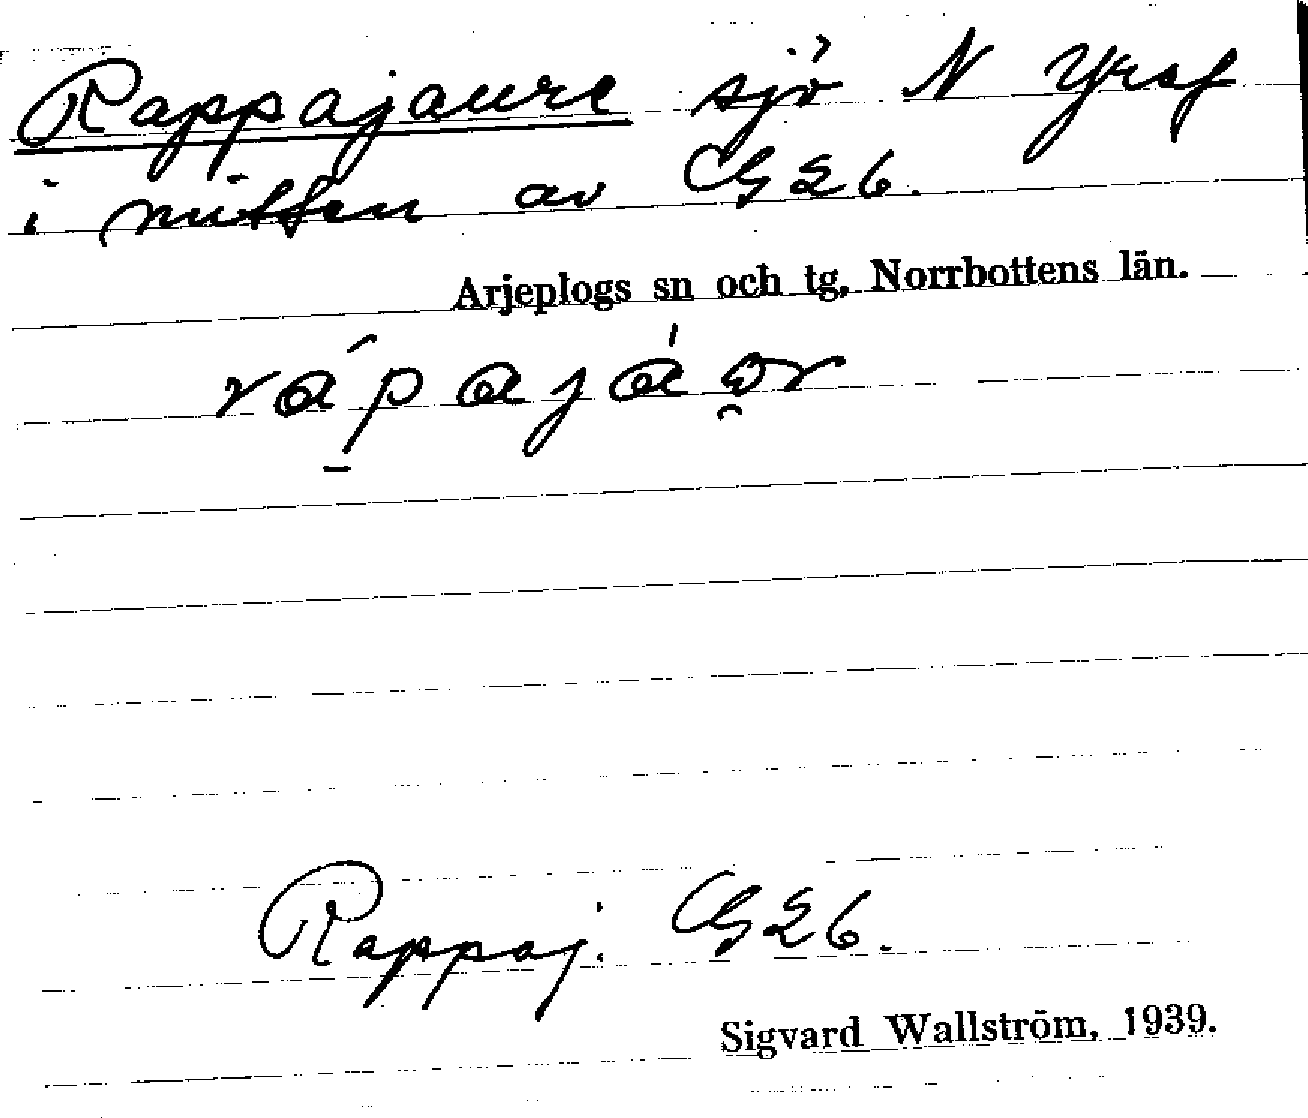 Rappajaure sjö N Yraf
i mitten av GEb.
Arjeplogs sn och tg, Norrbottens län.
Rappaj. GEb.
Sigvard Wallström, 1939.